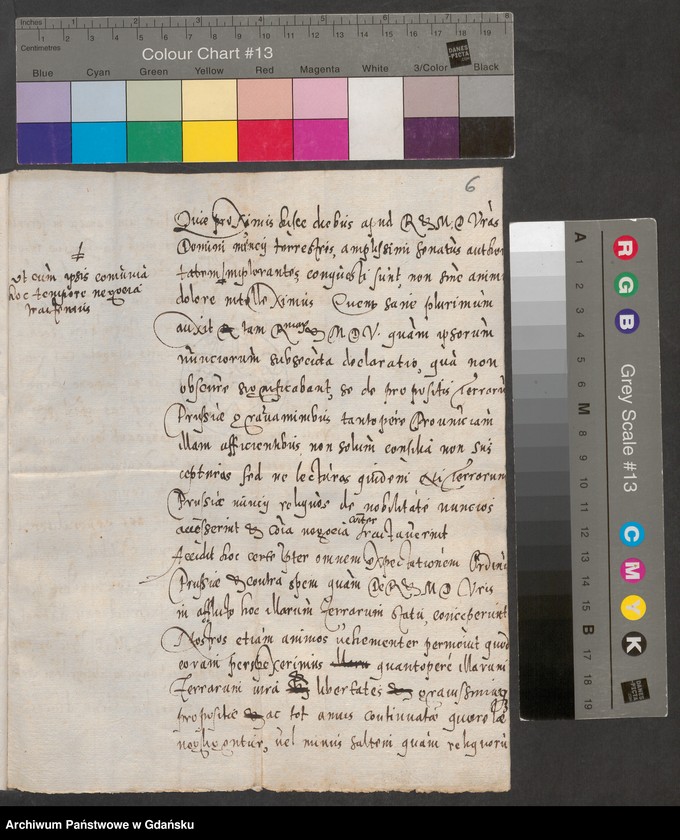 Inches 1 2 3 4 5 6 7 8
Centimetres 1 2 3 4 5 6 7 8 9 10 11 12 13 14 15 16 17 18 19
Colour Chart #13
DANES PICTA
Blue Cyan Green Yellow Red Magenta White 3/Color Black
6
Quae proximis hisce diebus apud R & M D Vras
Domini nuncii terrestres, amplissimi senatus author
tatem implorantes conquesti sunt, non sine animi
dolore intelleximus Quem sane plurimum
auxit tam M D V. quam ipsorum
nunciorum subsecuta declaratio, qua non
obscure significabant, se de propositis Terrarum
Prussiae gravaminibus tantopere Provinciam
illam afficientibus non solum consilia non sus
cepturos sed ne lecturos quidem Terrarum
Prussiae nuncii reliquos de nobilitate nuncios
accesserint & coia negocia tractaverint
Accidit hoc certe preter omnem expectationem Ordinum
Prussiae & contra spem quam De R & M D Vris
in afflicto hoc illarum Terrarum statu, conceperunt
Nostros etiam animos vehementer permovit quod
coram perspexerimus quantopere illarum
Terrarum iura libertates gravissimae
propositae ac tot annis continuatae querelae
negligentur, vel minus saltem quam reliquorum
ut cum ipsis communia
hoc tempore negocia
tractemus
A 1 2 3 4 5 6 M 8 9 10 11 12 13 14 15 B 17 18 19
R
G
B
Grey Scale #13
C
M
Y
K
Archiwum Państwowe w Gdańsku